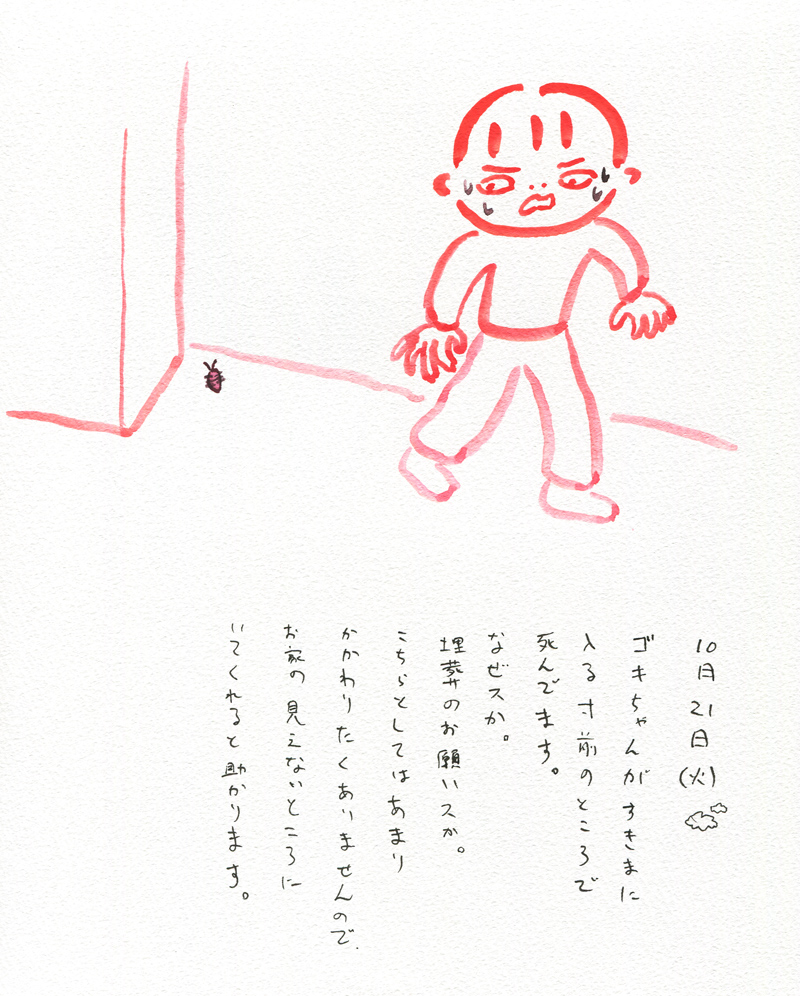 10月21日(火)
ゴキちゃんがすきまに
入る寸前のところで
死んでます。
なぜスか。
埋葬のお願いスか。
こちらとしてはあまり
かかわりたくありませんので、
お家の見えないところに
いてくれると助かります。